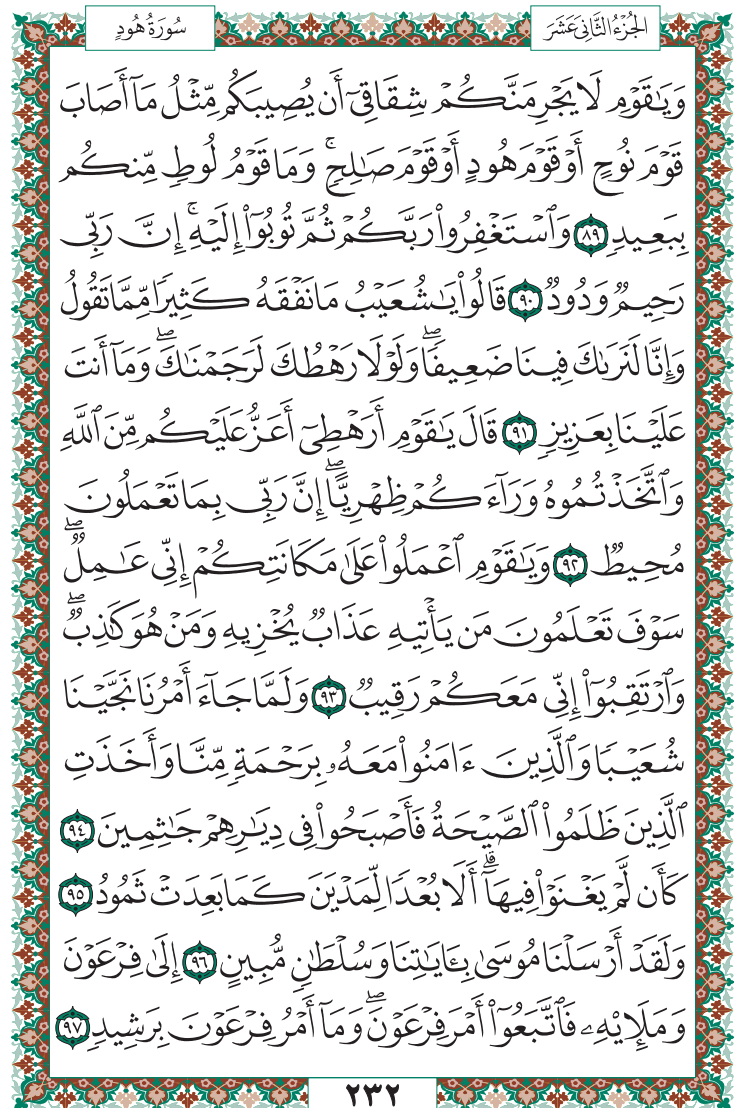 الجُزْءُ الثَّانِيَ عَشَرَ
سُورَةُ هُودٍ
وَيَٰقَوْمِ لَا يَجْرِمَنَّكُمْ شِقَاقِىٓ أَن يُصِيبَكُم مِّثْلُ مَآ أَصَابَ
قَوْمَ نُوحٍ أَوْ قَوْمَ هُودٍ أَوْ قَوْمَ صَٰلِحٍ ۚ وَمَا قَوْمُ لُوطٍ مِّنكُم
بِبَعِيدٍ ٨٩ وَٱسْتَغْفِرُوا۟ رَبَّكُمْ ثُمَّ تُوبُوٓا۟ إِلَيْهِ ۚ إِنَّ رَبِّى
رَحِيمٌ وَدُودٌ ٩٠ قَالُوا۟ يَٰشُعَيْبُ مَا نَفْقَهُ كَثِيرًا مِّمَّا تَقُولُ
وَإِنَّا لَنَرَىٰكَ فِينَا ضَعِيفًا ۖ وَلَوْلَا رَهْطُكَ لَرَجَمْنَٰكَ ۖ وَمَآ أَنتَ
عَلَيْنَا بِعَزِيزٍ ٩١ قَالَ يَٰقَوْمِ أَرَهْطِىٓ أَعَزُّ عَلَيْكُم مِّنَ ٱللَّهِ
وَٱتَّخَذْتُمُوهُ وَرَآءَكُمْ ظِهْرِيًّا ۖ إِنَّ رَبِّى بِمَا تَعْمَلُونَ
مُحِيطٌ ٩٢ وَيَٰقَوْمِ ٱعْمَلُوا۟ عَلَىٰ مَكَانَتِكُمْ إِنِّى عَٰمِلٌ ۖ
سَوْفَ تَعْلَمُونَ مَن يَأْتِيهِ عَذَابٌ يُخْزِيهِ وَمَنْ هُوَ كَٰذِبٌ ۖ
وَٱرْتَقِبُوٓا۟ إِنِّى مَعَكُمْ رَقِيبٌ ٩٣ وَلَمَّا جَآءَ أَمْرُنَا نَجَّيْنَا
شُعَيْبًا وَٱلَّذِينَ ءَامَنُوا۟ مَعَهُۥ بِرَحْمَةٍ مِّنَّا وَأَخَذَتِ
ٱلَّذِينَ ظَلَمُوا۟ ٱلصَّيْحَةُ فَأَصْبَحُوا۟ فِى دِيَٰرِهِمْ جَٰثِمِينَ ٩٤
كَأَن لَّمْ يَغْنَوْا۟ فِيهَآ ۗ أَلَا بُعْدًا لِّمَدْيَنَ كَمَا بَعِدَتْ ثَمُودُ ٩٥
وَلَقَدْ أَرْسَلْنَا مُوسَىٰ بِـَٔايَٰتِنَا وَسُلْطَٰنٍ مُّبِينٍ ٩٦ إِلَىٰ فِرْعَوْنَ
وَمَلَإِي۟هِۦ فَٱتَّبَعُوٓا۟ أَمْرَ فِرْعَوْنَ ۖ وَمَآ أَمْرُ فِرْعَوْنَ بِرَشِيدٍ ٩٧
٢٣٢